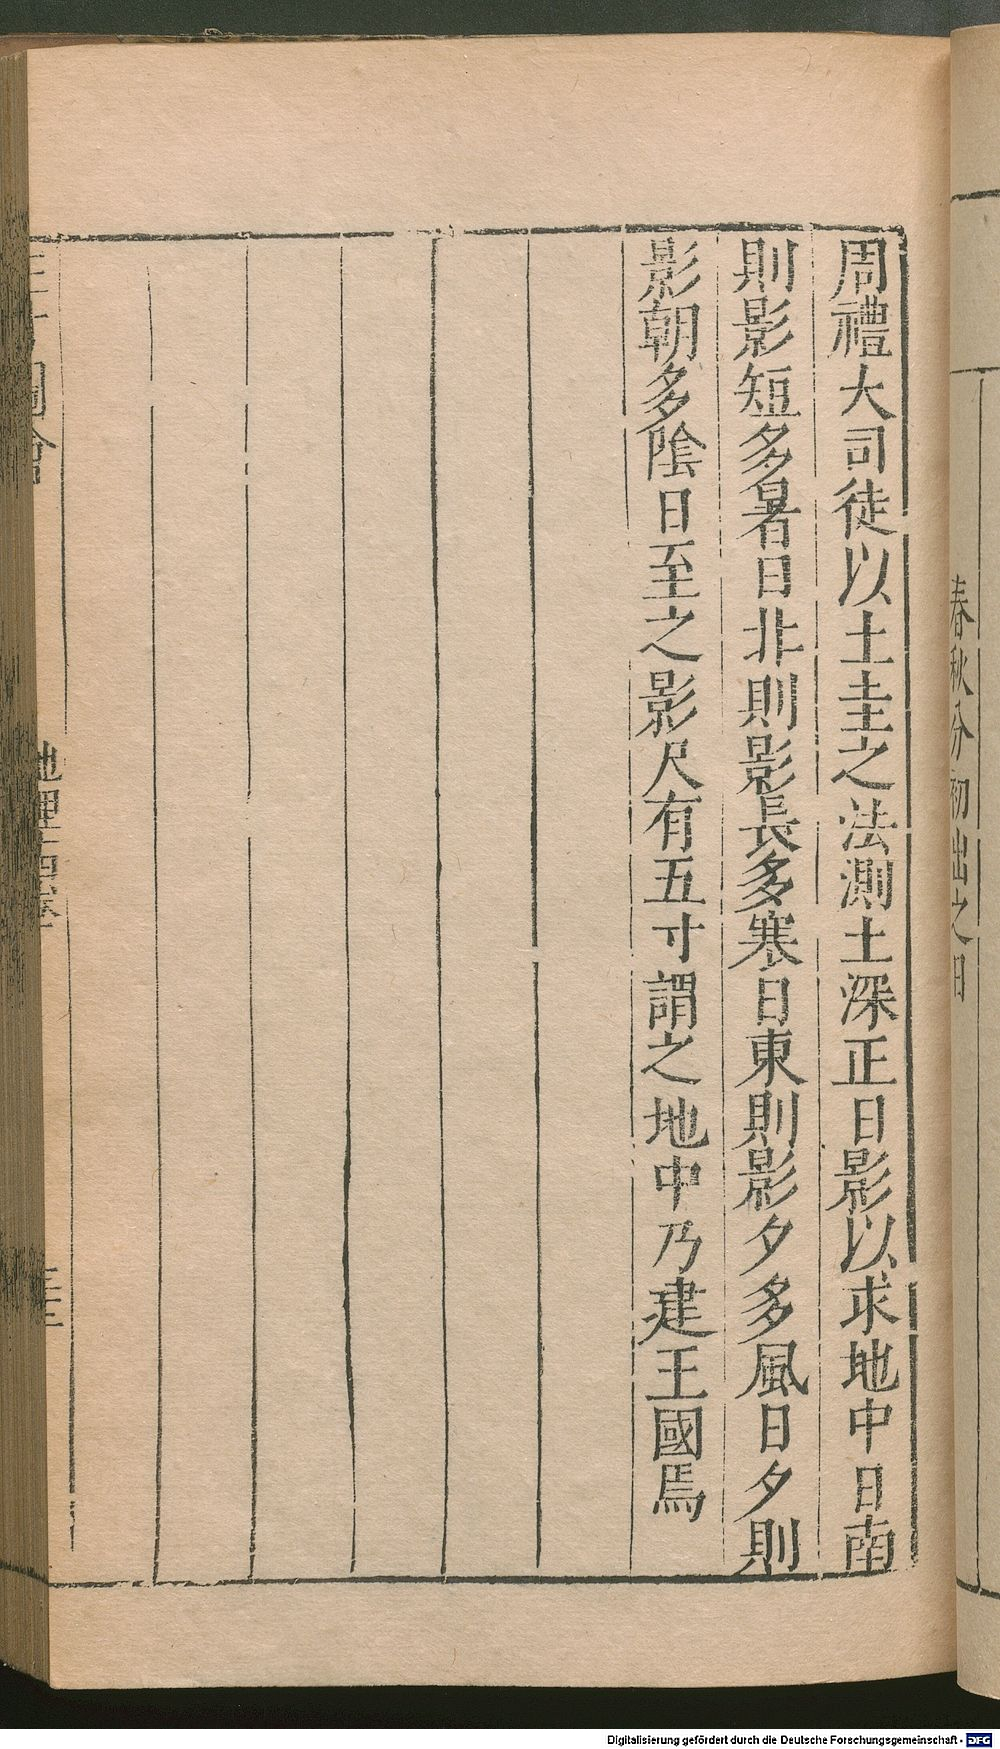 春秋分初出之日
周禮大司徒以土圭之法測土深正日影以求地中日南
則影短多暑日非則影長多寒日東則影夕多風日夕則
影朝多陰日至之影尺有五寸謂之地中乃建王國焉
圖會
地理十四卷
Digitalisierung gefördert durch die Deutsche Forschungsgemeinschaft - DFG